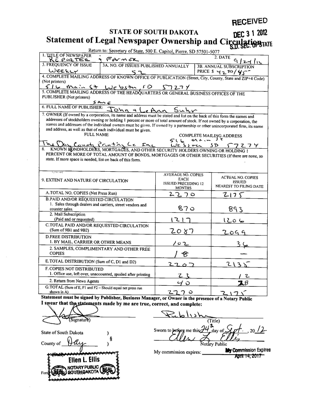 RECEIVED
DEC 31 2012
S.D. SEC. OF STATE
STATE OF SOUTH DAKOTA
Statement of Legal Newspaper Ownership and Circulation
Return to: Secretary of State, 500 E. Capitol, Pierre, SD 57501-5077
1. TITLE OF NEWSPAPER
Reporter & Farmer
2. DATE
9/24/12
3. FREQUENCY OF ISSUE
Weekly
3A. NO. OF ISSUES PUBLISHED ANNUALLY
52
3B. ANNUAL SUBSCRIPTION
PRICE $
4. COMPLETE MAILING ADDRESS OF KNOWN OFFICE OF PUBLICATION (Street, City, County, State and ZIP+4 Code)
(Not Printers)
516 Main St Webster SD 57274
5. COMPLETE MAILING ADDRESS OF THE HEADQUARTERS OR GENERAL BUSINESS OFFICES OF THE
PUBLISHER (Not printers)
same
6. FULL NAME OF PUBLISHER
John & LeAnn Suhr
7. OWNER (If owned by a corporation, its name and address must be stated and list on the back of this form the names and
addresses of stockholders owning or holding 1 percent or more of total amount of stock. If not owned by a corporation, the
names and addresses of the individual owners must be given. If owned by a partnership or other unincorporated firm, its name
and address, as well as that of each individual must be given.
FULL NAME
COMPLETE MAILING ADDRESS
516 Main St
The Day County Printing Co Inc
Webster SD 57274
8. KNOWN BONDHOLDERS, MORTGAGES, AND OTHER SECURITY HOLDERS OWNING OR HOLDING 1
PERCENT OR MORE OF TOTAL AMOUNT OF BONDS, MORTGAGES OR OTHER SECURITIES (If there are none, so
state. If more space is needed, list on back of this form.
9. EXTENT AND NATURE OF CIRCULATION
AVERAGE NO. COPIES
EACH
ISSUED PRECEDING 12
MONTHS
ACTUAL NO. COPIES
ISSUED
NEAREST TO FILING DATE
A. TOTAL NO. COPIES (Net Press Run)
2270
2175
B. PAID AND/OR REQUESTED CIRCULATION
1. Sales through dealers and carriers, street vendors and
counter sales
870
893
2. Mail Subscription
(Paid and or requested)
1217
1206
C. TOTAL PAID AND/OR REQUESTED CIRCULATION
(Sum of 9B1 and 9B2)
2087
2099
D. FREE DISTRIBUTION
1. BY MAIL, CARRIER OR OTHER MEANS
102
36
2. SAMPLES, COMPLIMENTARY AND OTHER FREE
COPIES
18
E. TOTAL DISTRIBUTION (Sum of C, D1 and D2)
2207
2135
F. COPIES NOT DISTRIBUTED
1. Office use, left over, unaccounted, spoiled after printing
23
12
2. Return from News Agents
40
28
G. TOTAL (Sum of E, F1 and F2 - Should equal net press run
shown in A)
2270
2175
Statement must be signed by Publisher, Business Manager, or Owner in the presence of a Notary Public
I swear that the statements made by me are true, correct, and complete:
Publisher
(Signature)
(Title)
State of South Dakota
County of Day
Sworn to before me this 24th day of Sept, 2012
Ellen L Ellis
Notary Public
My commission expires:
My Commission Expires
April 14, 2017
Ellen L. Ellis
NOTARY PUBLIC
SOUTH DAKOTA
SEAL